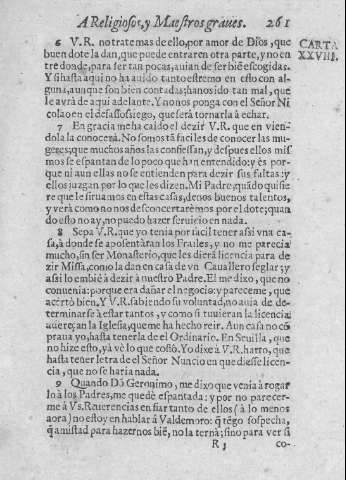 A Religiosos, y Maestros graves. 261
6 V.R. no trate mas de ello, por amor de Dios, que
CARTA
buen dote la dan, que puede entrar en otra parte, y no en
XXVIII.
tre donde, para ser tan pocas, avian de ser biē escogidas.
Y si hasta aqui no ha auido tanto estremo en esto con al-
guna, aunque son bien contadas; hanos ido tan mal, que
le avrà de aqui adelante. Y no nos ponga con el Señor Ni
colao en el desassossiego, que serà tornarla à echar.
7 En gracia me ha caido el dezir V.R. que en vien-
dola la conocerà. No somos tā faciles de conocer las mu-
geres; que muchos años las confiessan, y despues ellos mis
mos se espantan de lo poco que han entendido: y es por-
que ni aun ellas no se entienden para dezir sus faltas: y
ellos juzgan por lo que les dizen. Mi Padre, quādo quisie
re que le siruamos en estas casas, denos buenos talentos,
y verà como no nos desconcertarèmos por el dote; quan
do esto no ay, no puedo hazer seruicio en nada.
8 Sepa V.R. que yo tenia por facil tener assi vna ca-
sa, à donde se aposentàran los Frailes, y no me parecia
mucho, sin ser Monasterio, que les diera licencia para de
zir Missa, como la dan en casa de vn Cauallero seglar; y
assi lo embiè à dezir à nuestro Padre. El me dixo, que no
conuenia: porque era dañar el negocio: y pareceme, que
acertò bien. Y V.R. sabiendo su voluntad, no auia de de-
terminarse à estar tantos, y como si tuuieran la licencia
adereçar la Iglesia, que me ha hecho reir. Aun casa no cō
praua yo, hasta tenerla de el Ordinario. En Seuilla, que
no hize esto, yà vè lo que costò. Yo dixe à V.R. harto, que
hasta tener letra de el Señor Nuncio en que diesse licen-
cia, que no se haria nada.
9 Quando Dō Geronimo, me dixo que venia à rogar
lo à los Padres, me quedè espantada: y por no parecer-
me à Vs. Reuerencias en fiar tanto de ellos (à lo menos
aora) no estoy en hablar à Valdemoro: q̄ tēgo sospecha,
q̄ amistad para hazernos biē, no la ternà; sino para ver si
R 3 co-